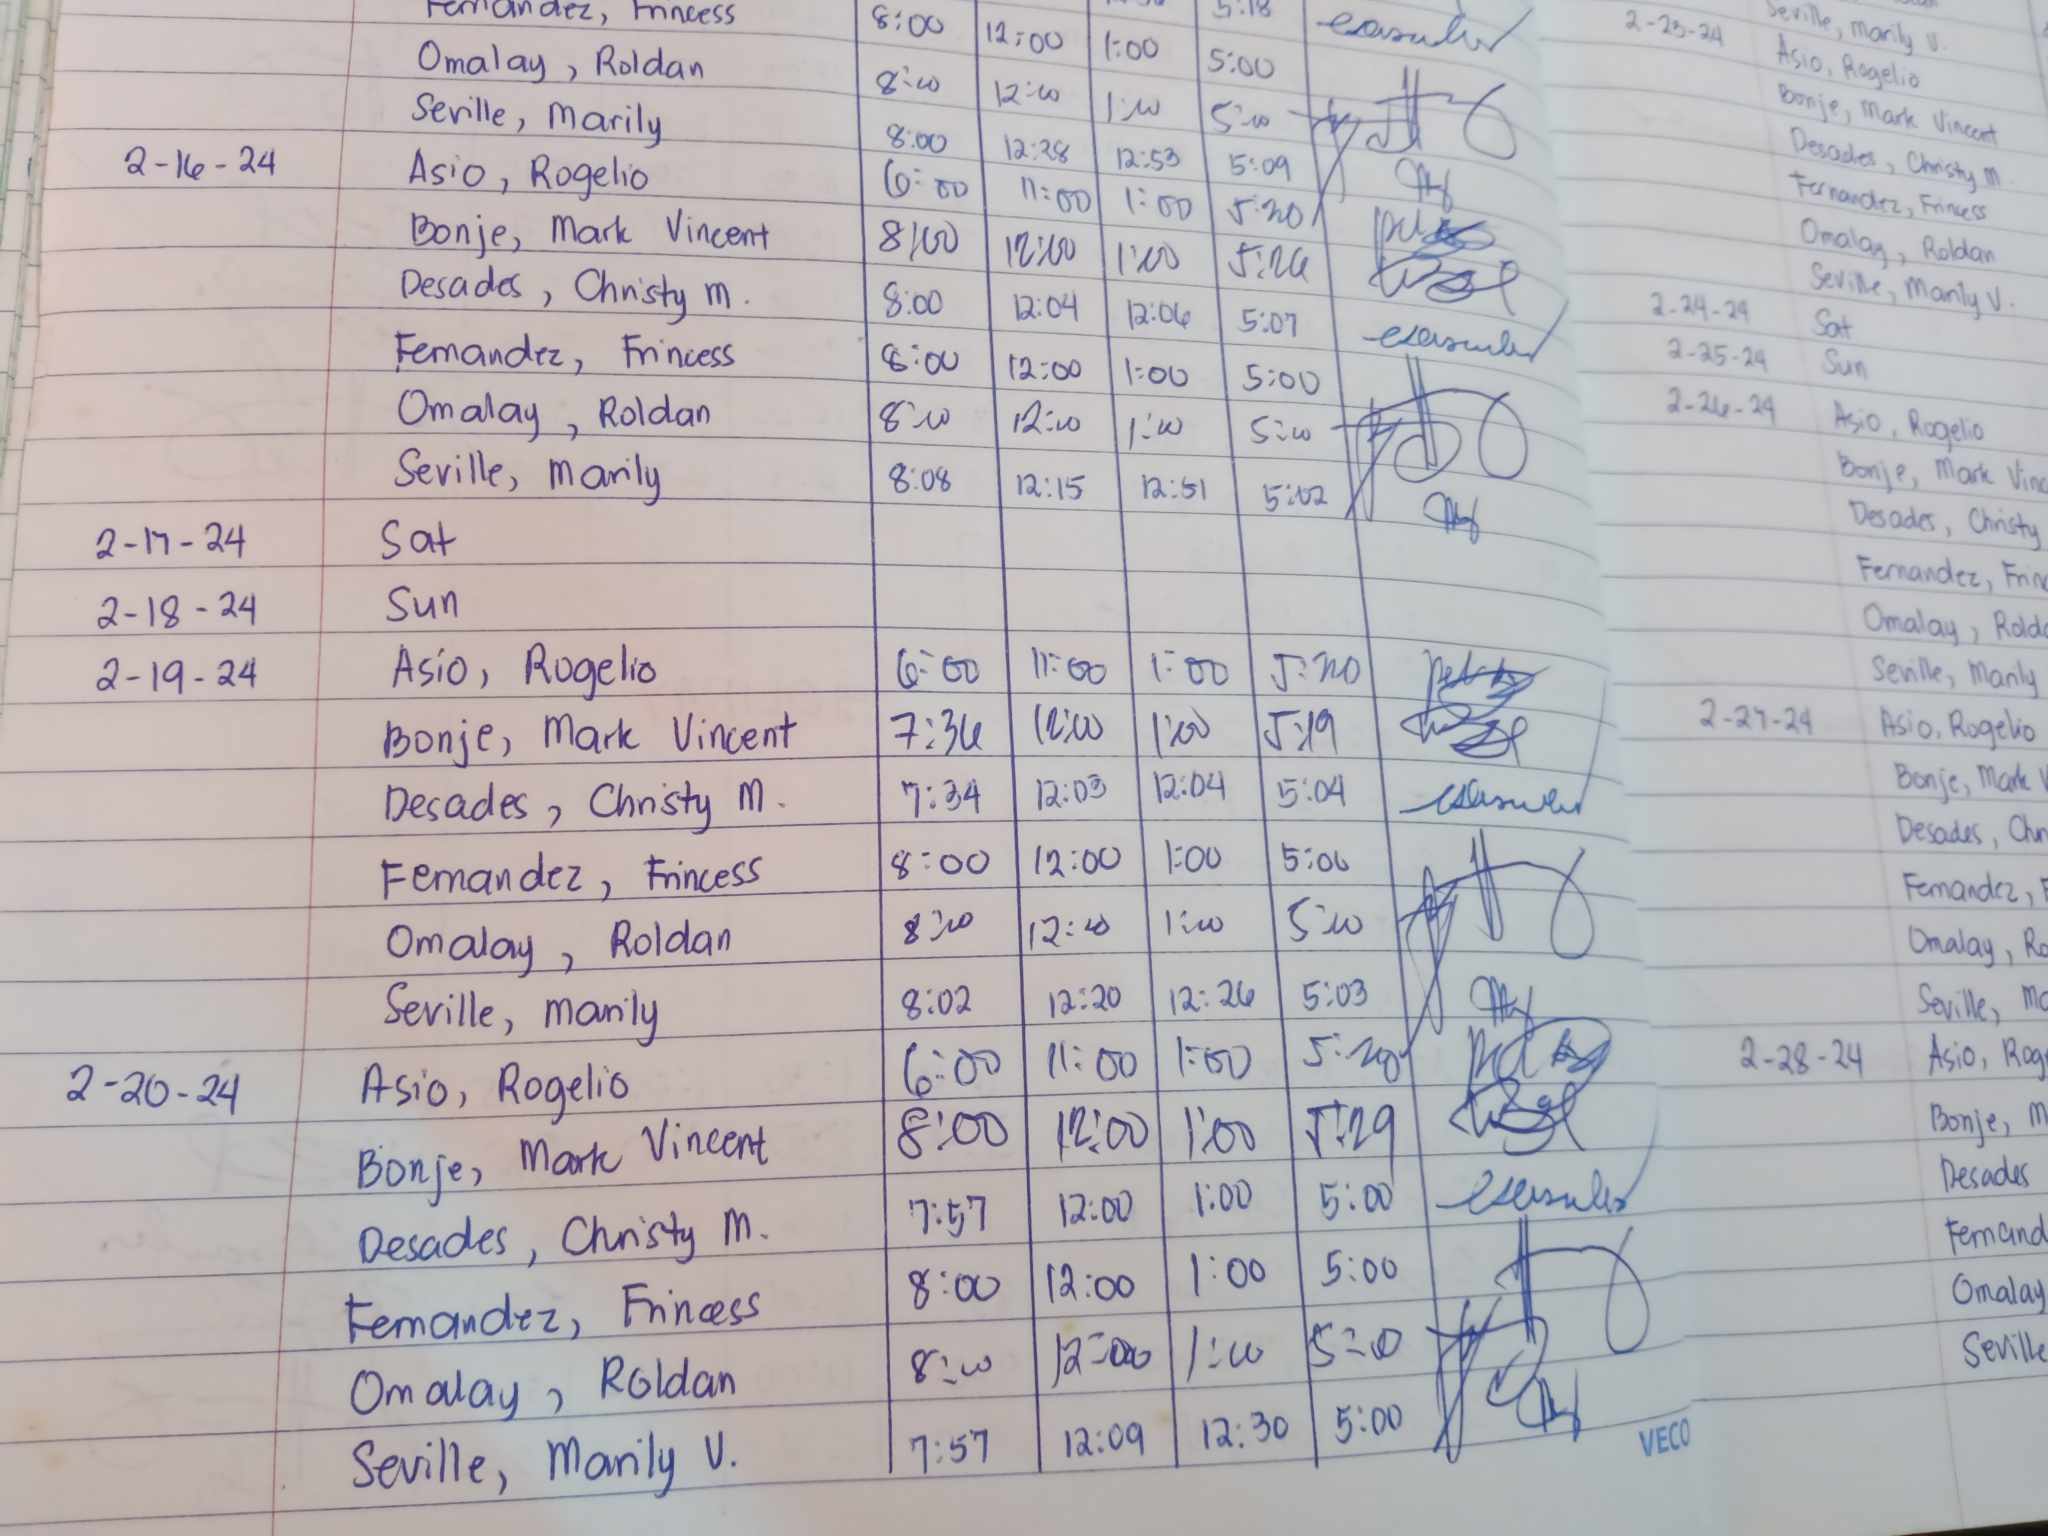 Fernandez, Frincess 8:00 12:00 1:00 5:00
Omalay, Roldan 8:00 12:00 1:00 5:00
Seville, Marily 8:00 12:28 12:53 5:09
2-16-24 Asio, Rogelio 6:00 11:00 1:00 5:20
Bonje, Mark Vincent 8:00 12:00 1:00 5:26
Desades, Christy M. 8:00 12:04 12:06 5:07
Fernandez, Frincess 8:00 12:00 1:00 5:00
Omalay, Roldan 8:00 12:00 1:00 5:00
Seville, Marily 8:08 12:15 12:51 5:02
2-17-24 Sat
2-18-24 Sun
2-19-24 Asio, Rogelio 6:00 11:00 1:00 5:20
Bonje, Mark Vincent 7:36 12:00 1:00 5:19
Desades, Christy M. 7:34 12:03 12:04 5:04
Fernandez, Frincess 8:00 12:00 1:00 5:00
Omalay, Roldan 8:00 12:00 1:00 5:00
Seville, Marily 8:02 12:20 12:26 5:03
2-20-24 Asio, Rogelio 6:00 11:00 1:00 5:20
Bonje, Mark Vincent 8:00 12:00 1:00 5:29
Desades, Christy M. 7:57 12:00 1:00 5:00
Fernandez, Frincess 8:00 12:00 1:00 5:00
Omalay, Roldan 8:00 12:00 1:00 5:00
Seville, Marily V. 7:57 12:09 12:30 5:00
VECO
2-23-24 Seville, Marily V.
Asio, Rogelio
Bonje, Mark Vincent
Desades, Christy M.
Fernandez, Frincess
Omalay, Roldan
Seville, Marily V.
2-24-24 Sat
2-25-24 Sun
2-26-24 Asio, Rogelio
Bonje, Mark Vinc
Desades, Christy
Fernandez, Frin
Omalay, Rolda
Seville, Marily
2-27-24 Asio, Rogelio
Bonje, Mark V
Desades, Chri
Fernandez, F
Omalay, Ro
Seville, Ma
2-28-24 Asio, Rog
Bonje, M
Desades
Fernand
Omalay
Seville